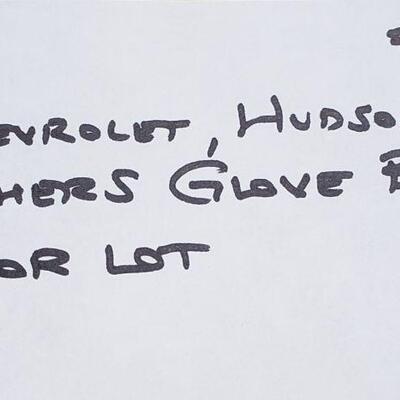 EVROLET, HUDSO
HERS GLOVE B
OR LOT